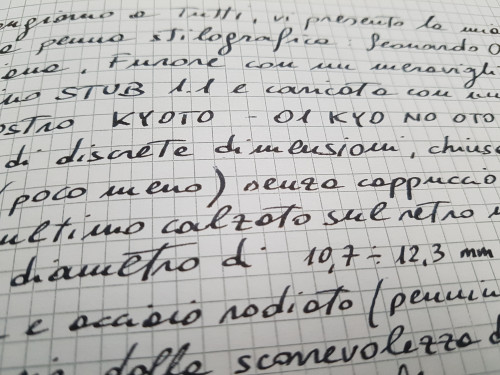 a Tutti, vi presento la
penna stilografica: Leonardo
. Furore con un meravigli
STUB 1.1 e caricata con un
ostro KYOTO - 01 KYO NO OTO
di discrete dimensioni, chius
(poco meno) senza cappuccio
ultimo calzato sul retro
diametro di 10,7 ÷ 12,3 mm
e acciaio rodiato (pennin
dalla scorrevolezza d